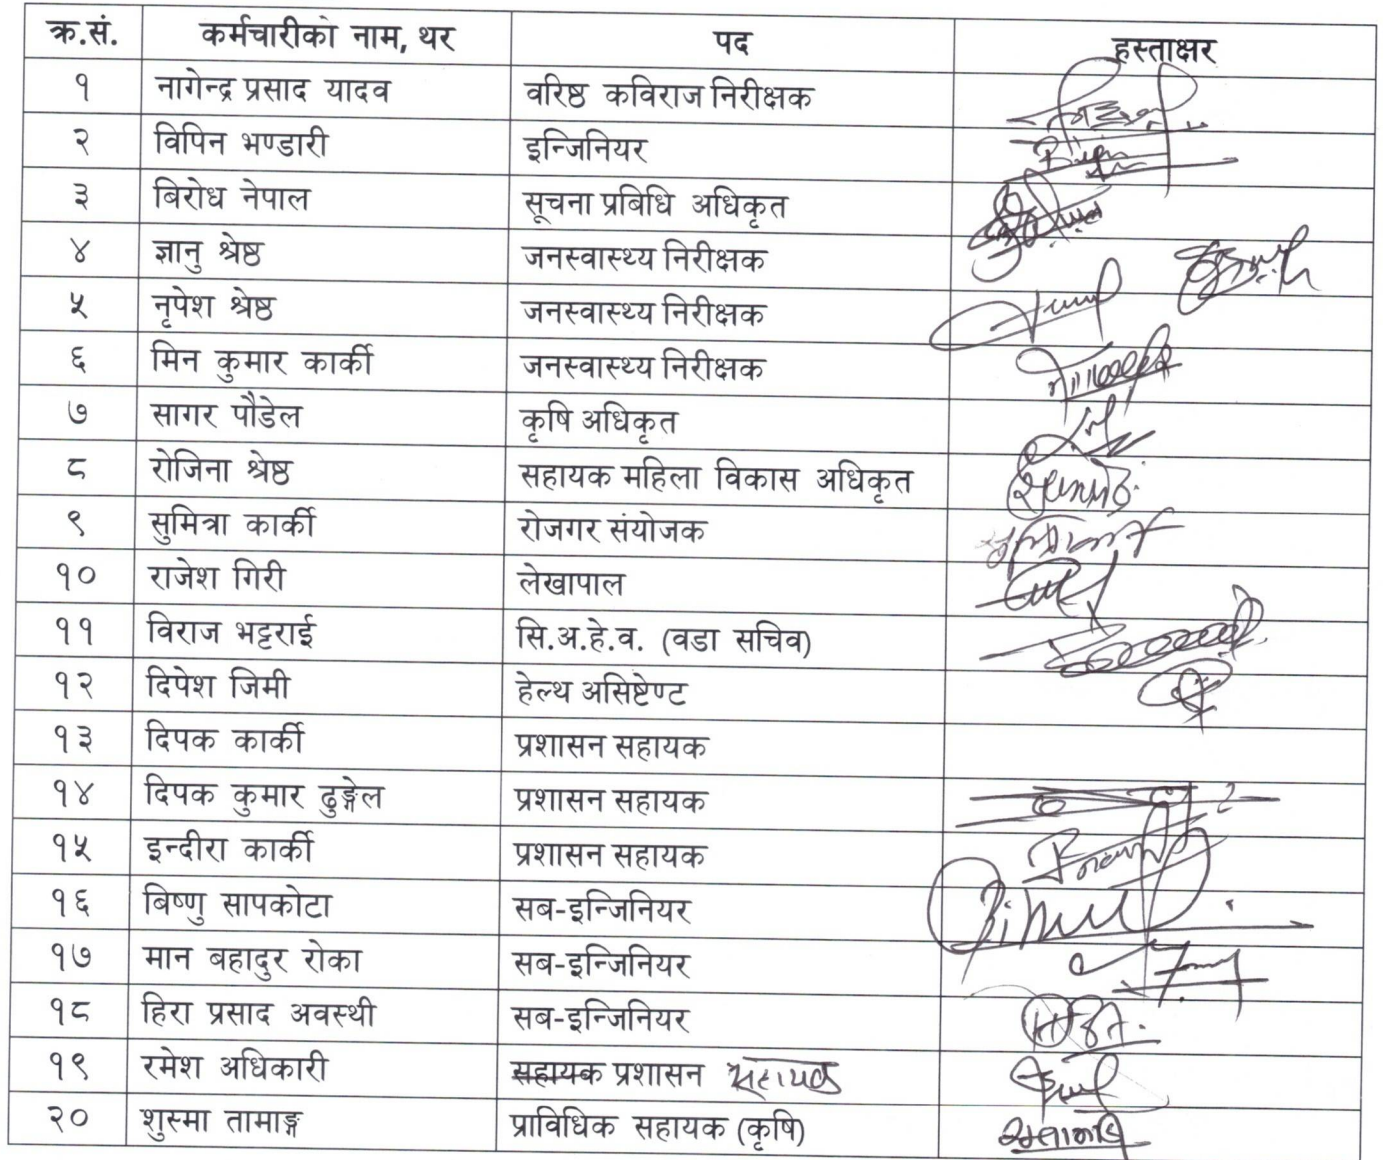 क्र.सं. कर्मचारीको नाम, थर पद हस्ताक्षर
१ नागेन्द्र प्रसाद यादव वरिष्ठ कविराज निरीक्षक
२ विपिन भण्डारी इन्जिनियर
३ बिरोध नेपाल सूचना प्रबिधि अधिकृत
४ ज्ञानु श्रेष्ठ जनस्वास्थ्य निरीक्षक
५ नृपेश श्रेष्ठ जनस्वास्थ्य निरीक्षक
६ मिन कुमार कार्की जनस्वास्थ्य निरीक्षक
७ सागर पौडेल कृषि अधिकृत
८ रोजिना श्रेष्ठ सहायक महिला विकास अधिकृत
९ सुमित्रा कार्की रोजगर संयोजक
१० राजेश गिरी लेखापाल
११ विराज भट्टराई सि.अ.हे.व. (वडा सचिव)
१२ दिपेश जिमी हेल्थ असिष्टेण्ट
१३ दिपक कार्की प्रशासन सहायक
१४ दिपक कुमार ढुङ्गेल प्रशासन सहायक
१५ इन्दीरा कार्की प्रशासन सहायक
१६ बिष्णु सापकोटा सब-इन्जिनियर
१७ मान बहादुर रोका सब-इन्जिनियर
१८ हिरा प्रसाद अवस्थी सब-इन्जिनियर
१९ रमेश अधिकारी सहायक प्रशासन सहायक
२० शुस्मा तामाङ्ग प्राविधिक सहायक (कृषि)